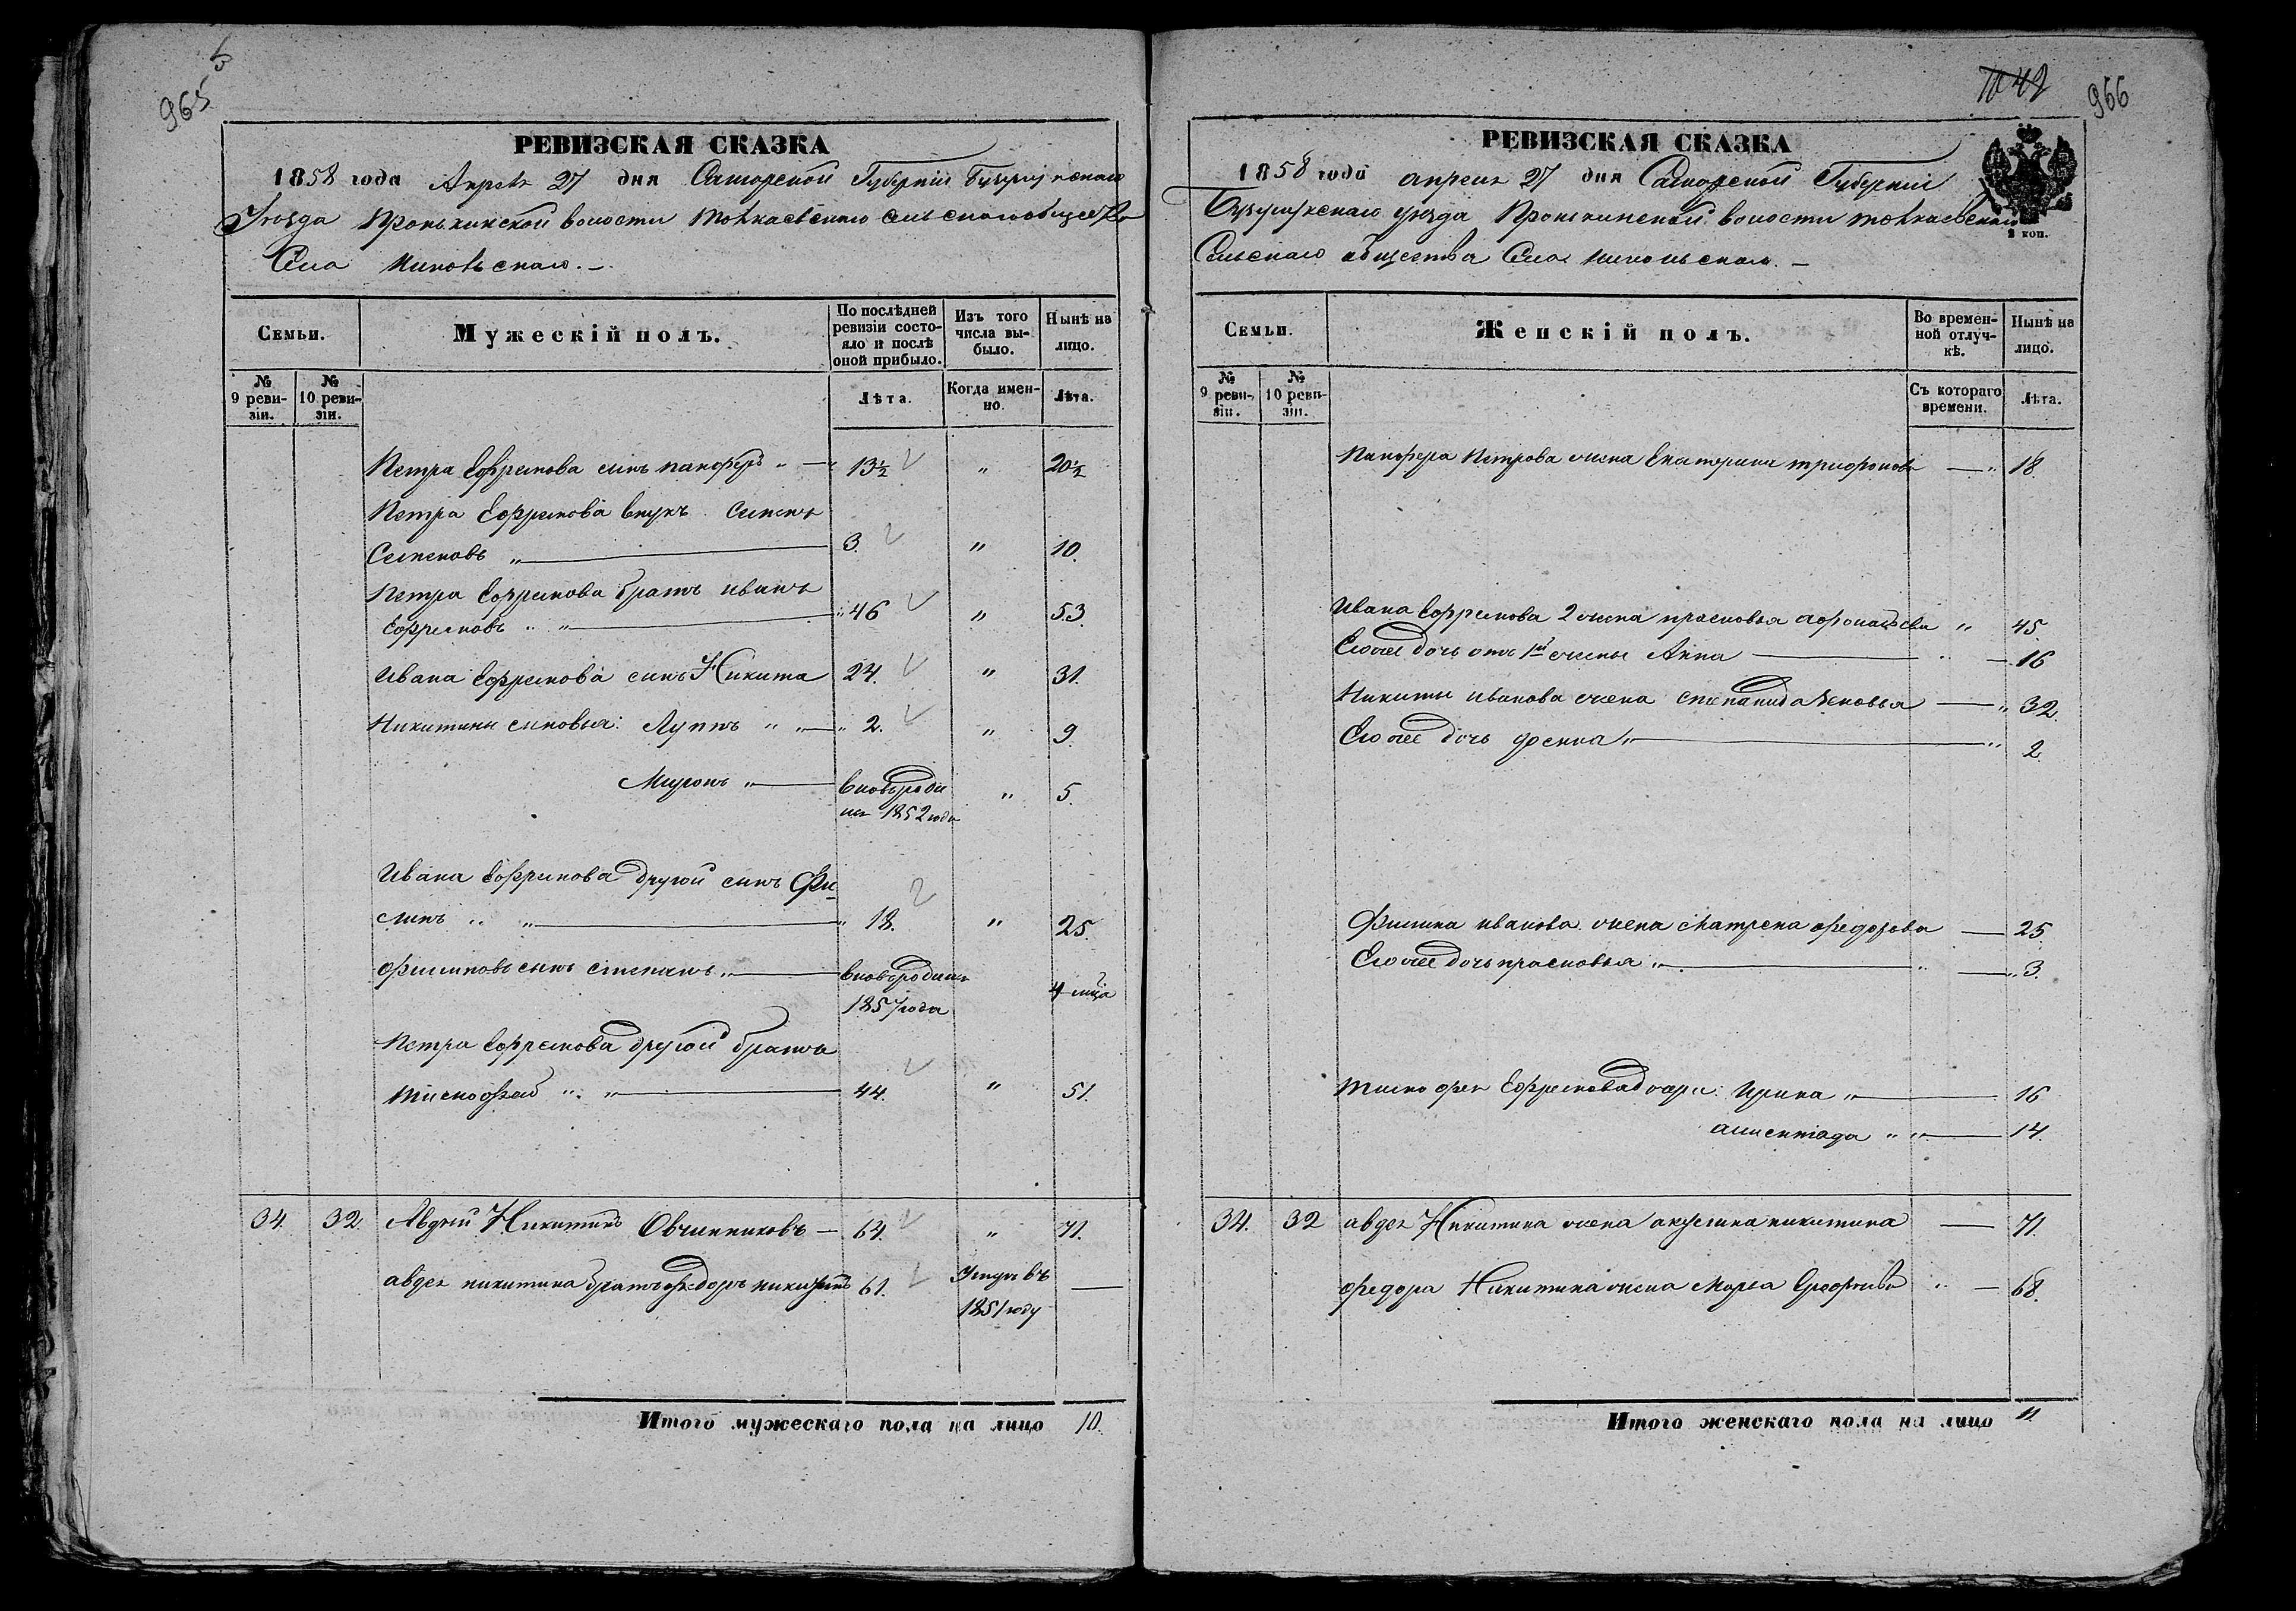 965
РЕВИЗСКАЯ СКАЗКА
1858 года Апреля 27 дня Самарской Губернии Бузулукскаго
Уѣзда Пронькинской волости Толкаевскаго сельскаго общества
Села Никольскаго. –
Семьи.
Мужескій полъ.
По послѣдней ревизіи состояло и послѣ оной прибыло.
Изъ того числа выбыло.
Нынѣ на лицо.
№ 9 ревизіи.
№ 10 ревизіи.
Лѣта.
Когда именно.
Лѣта.
Петра Ефремова сынъ Панферъ „ — 13½ „ 20½
Петра Ефремова внукъ Семенъ
Семеновъ „ — 3. „ 10.
Петра Ефремова братъ иванъ
Ефремовъ „ „ — 46 „ 53.
Ивана Ефремова сынъ Никита 24. „ 31.
Никитины сыновья: Луппъ „ „ — 2. „ 9.
Миронъ „ — вновь роди
лся 1852 года „ 5.
Ивана Ефремова другой сынъ Фи-
липъ „ „ — 18. „ 25.
Филиповъ сынъ степанъ „ — вновь родился
1857 года 4 м-ца
Петра Ефремова другой братъ
Тимофей „ „ — 44. „ 51.
34. 32. Авдей Никитинъ Овчинниковъ — 64. „ 71.
авдея никитина братъ федоръ никитинъ 61. Умеръ въ
1851 году —
Итого мужескаго пола на лицо 10.
966
РЕВИЗСКАЯ СКАЗКА
1858 года апреля 27 дня Самарской Губернии
Бузулукскаго уезда Пронькинской волости толкаевскаго
2 коп.
Сельскаго общества Села Никольскаго. –
Семьи.
Женскій полъ.
Во временной отлучкѣ.
Нынѣ на лицо.
№ 9 ревизіи.
№ 10 ревизіи.
Съ котораго времени.
Лѣта.
Панфера Петрова жена Екатерина трифонова — „ 18.
Ивана Ефремова 2 жена прасковья афонасьева „ 45.
Его же дочь отъ 1й жены Анна — 16
Никиты иванова жена степанида — „ 32.
Его же дочь фекла „ — „ 2.
Филипа иванова жена Матрена федорова — 25.
Его же дочь прасковья „ — „ 3.
Ефремова дочери: Ирина „ — 16
„ „ — 14.
34. 32 авдея Никитина жена акулина никитина — 71.
федора Никитина жена Марья „ — 68.
Итого женскаго пола на лицо 11.